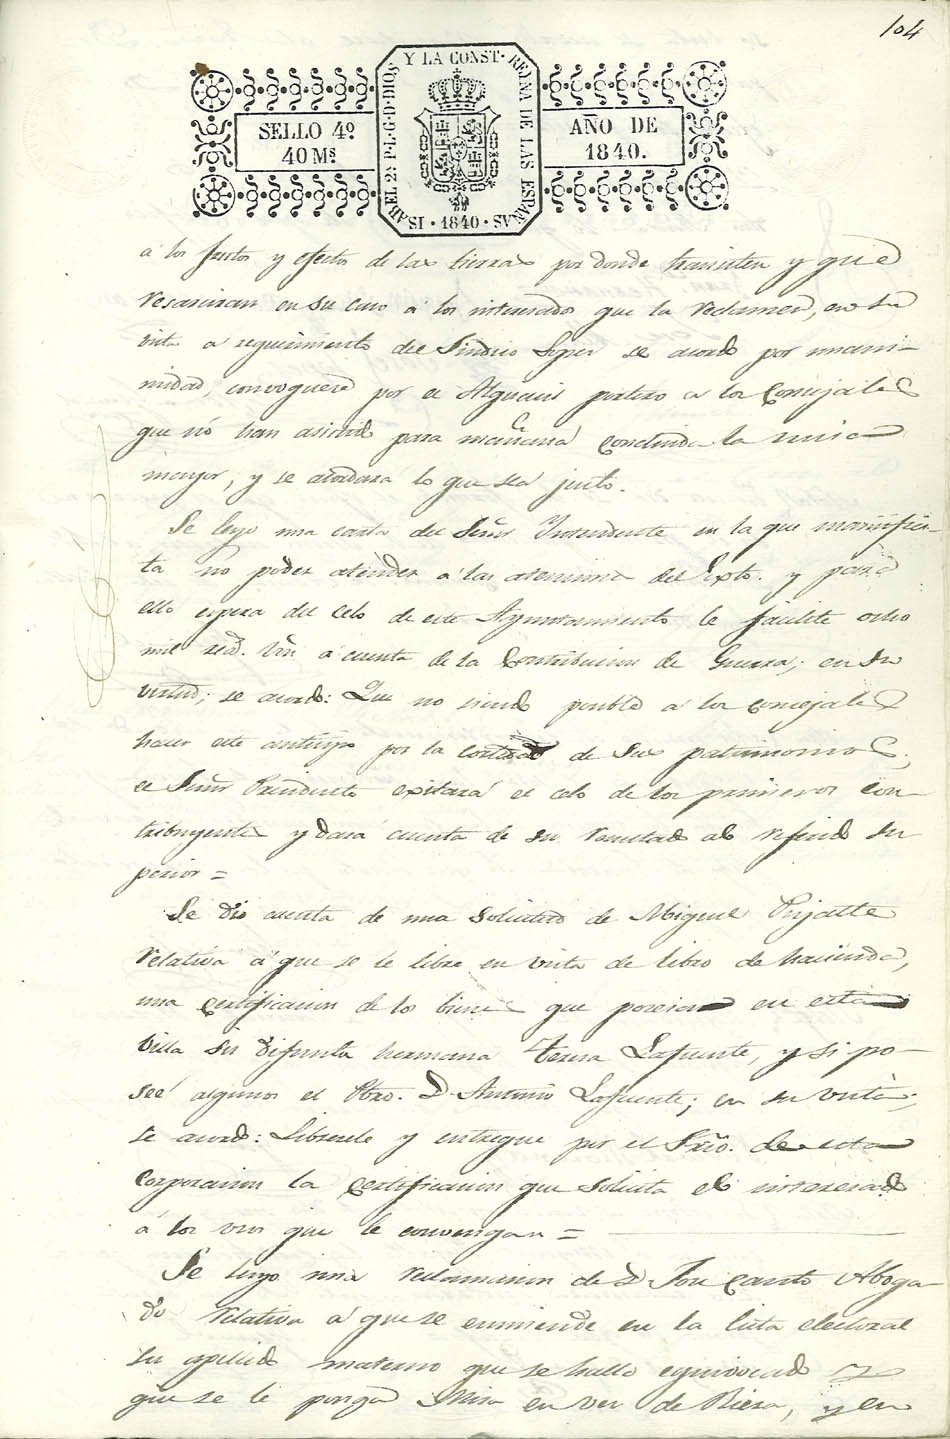 104
Y LA CONST. REYNA DE LAS ESPAÑAS
ISABEL 2ª P.L.G.D.DIOS
1840
SELLO 4º
40 Ms
AÑO DE
1840.
á los frutos y efectos de las tierras por donde transiten y que
resarciran en su caso á los interesados que la reclamen, en su
vista a requerimiento del Sindico se acordó por unani-
midad, convoquese por el Alguacil portero a los Concejales
que nó han asistido para mañana concluida la misa
mayor, y se acordara lo que sea justo.
Se leyo una carta del Señr Yntendente en la que manifies-
ta no poder atender á las atenciones del Exto. y para
ello espera del celo de este Ayuntamiento le facilite ocho
mil rea. Vn á cuenta de la Contribucion de Guerra; en su
virtud; se acordó: Que no siendo posible á los concejales
hacer este anticipo por la cortedad de sus patrimonios,
el Señr Presidente exitará el celo de los primeros con-
tribuyentes y dará cuenta de su resultado al referido su
perior =
Se dio cuenta de una solicitud de Miguel Pujalte
relativa á que se le libre en vista de libro de hacienda,
una certificacion de los bienes que poseia en esta
villa su difunta hermana Teresa Lafuente, y si po-
seé algunos el Pbro. D. Antonio Lafuente; en su vista,
se acordó: Librese le y entregue por el Srio. de esta
Corporacion la certificacion que solicita el interesado
á los usos que le convengan =
Se leyo una reclamacion de D. Jose Canto Aboga-
do relativa á que se enmiende en la lista electoral
su apellido materno que se halla equivocado y
que se le ponga Mira en ves de Riera, y en